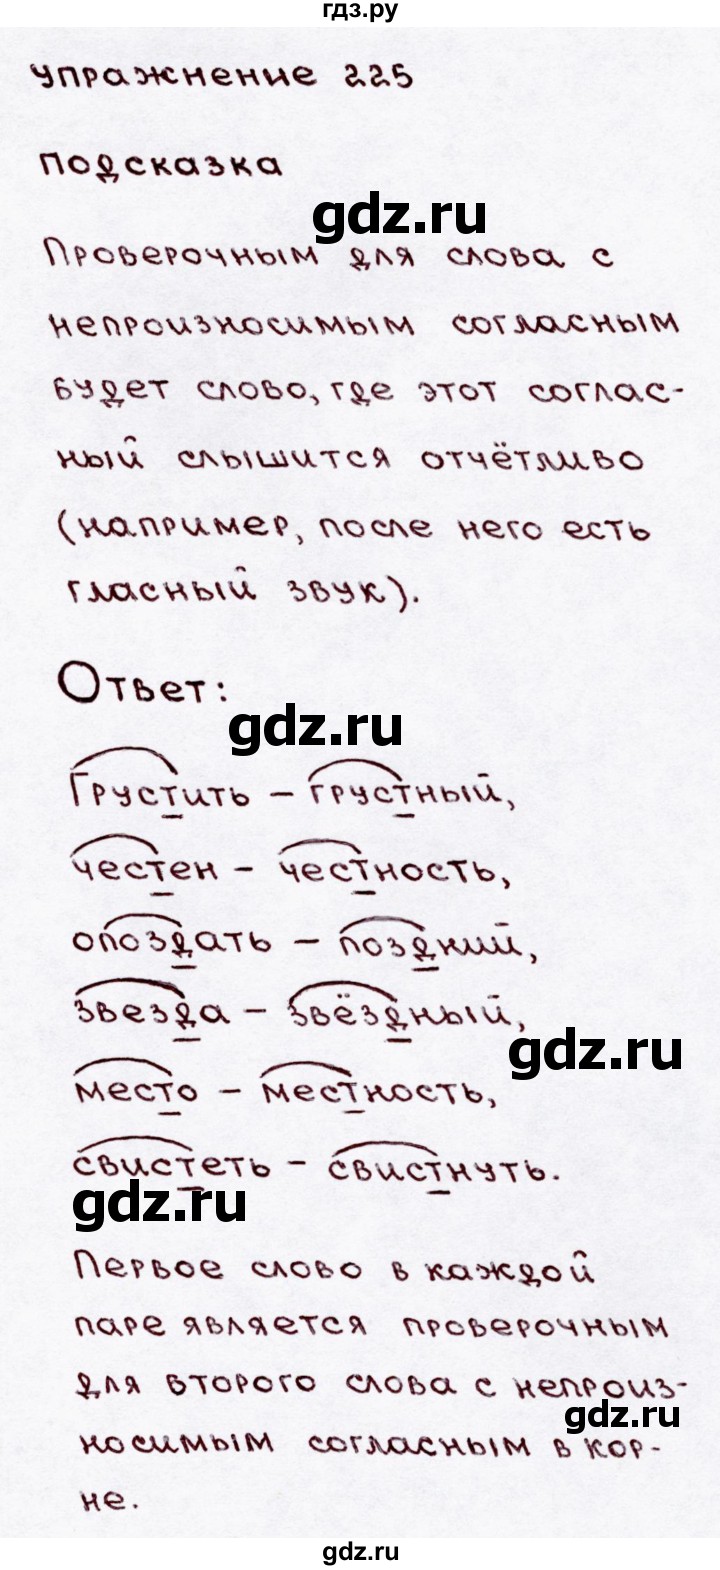 гдз.ру
упражнение 225
подсказка
gdz.ru
Проверочным для слова с
непроизносимым согласным
будет слово, где этот соглас-
ный слышится отчётливо
(например, после него есть
гласный звук).
Ответ:
gdz.ru
Грустить – грустный,
честен – честность,
опоздать – поздний,
звезда – звёздный,
gdz.ru
место – местность,
свистеть – свистнуть.
gdz.ru
Первое слово в каждой
паре является проверочным
для второго слова с непроиз-
gdz.ru
носимым согласным в кор-
не.
gdz.ru